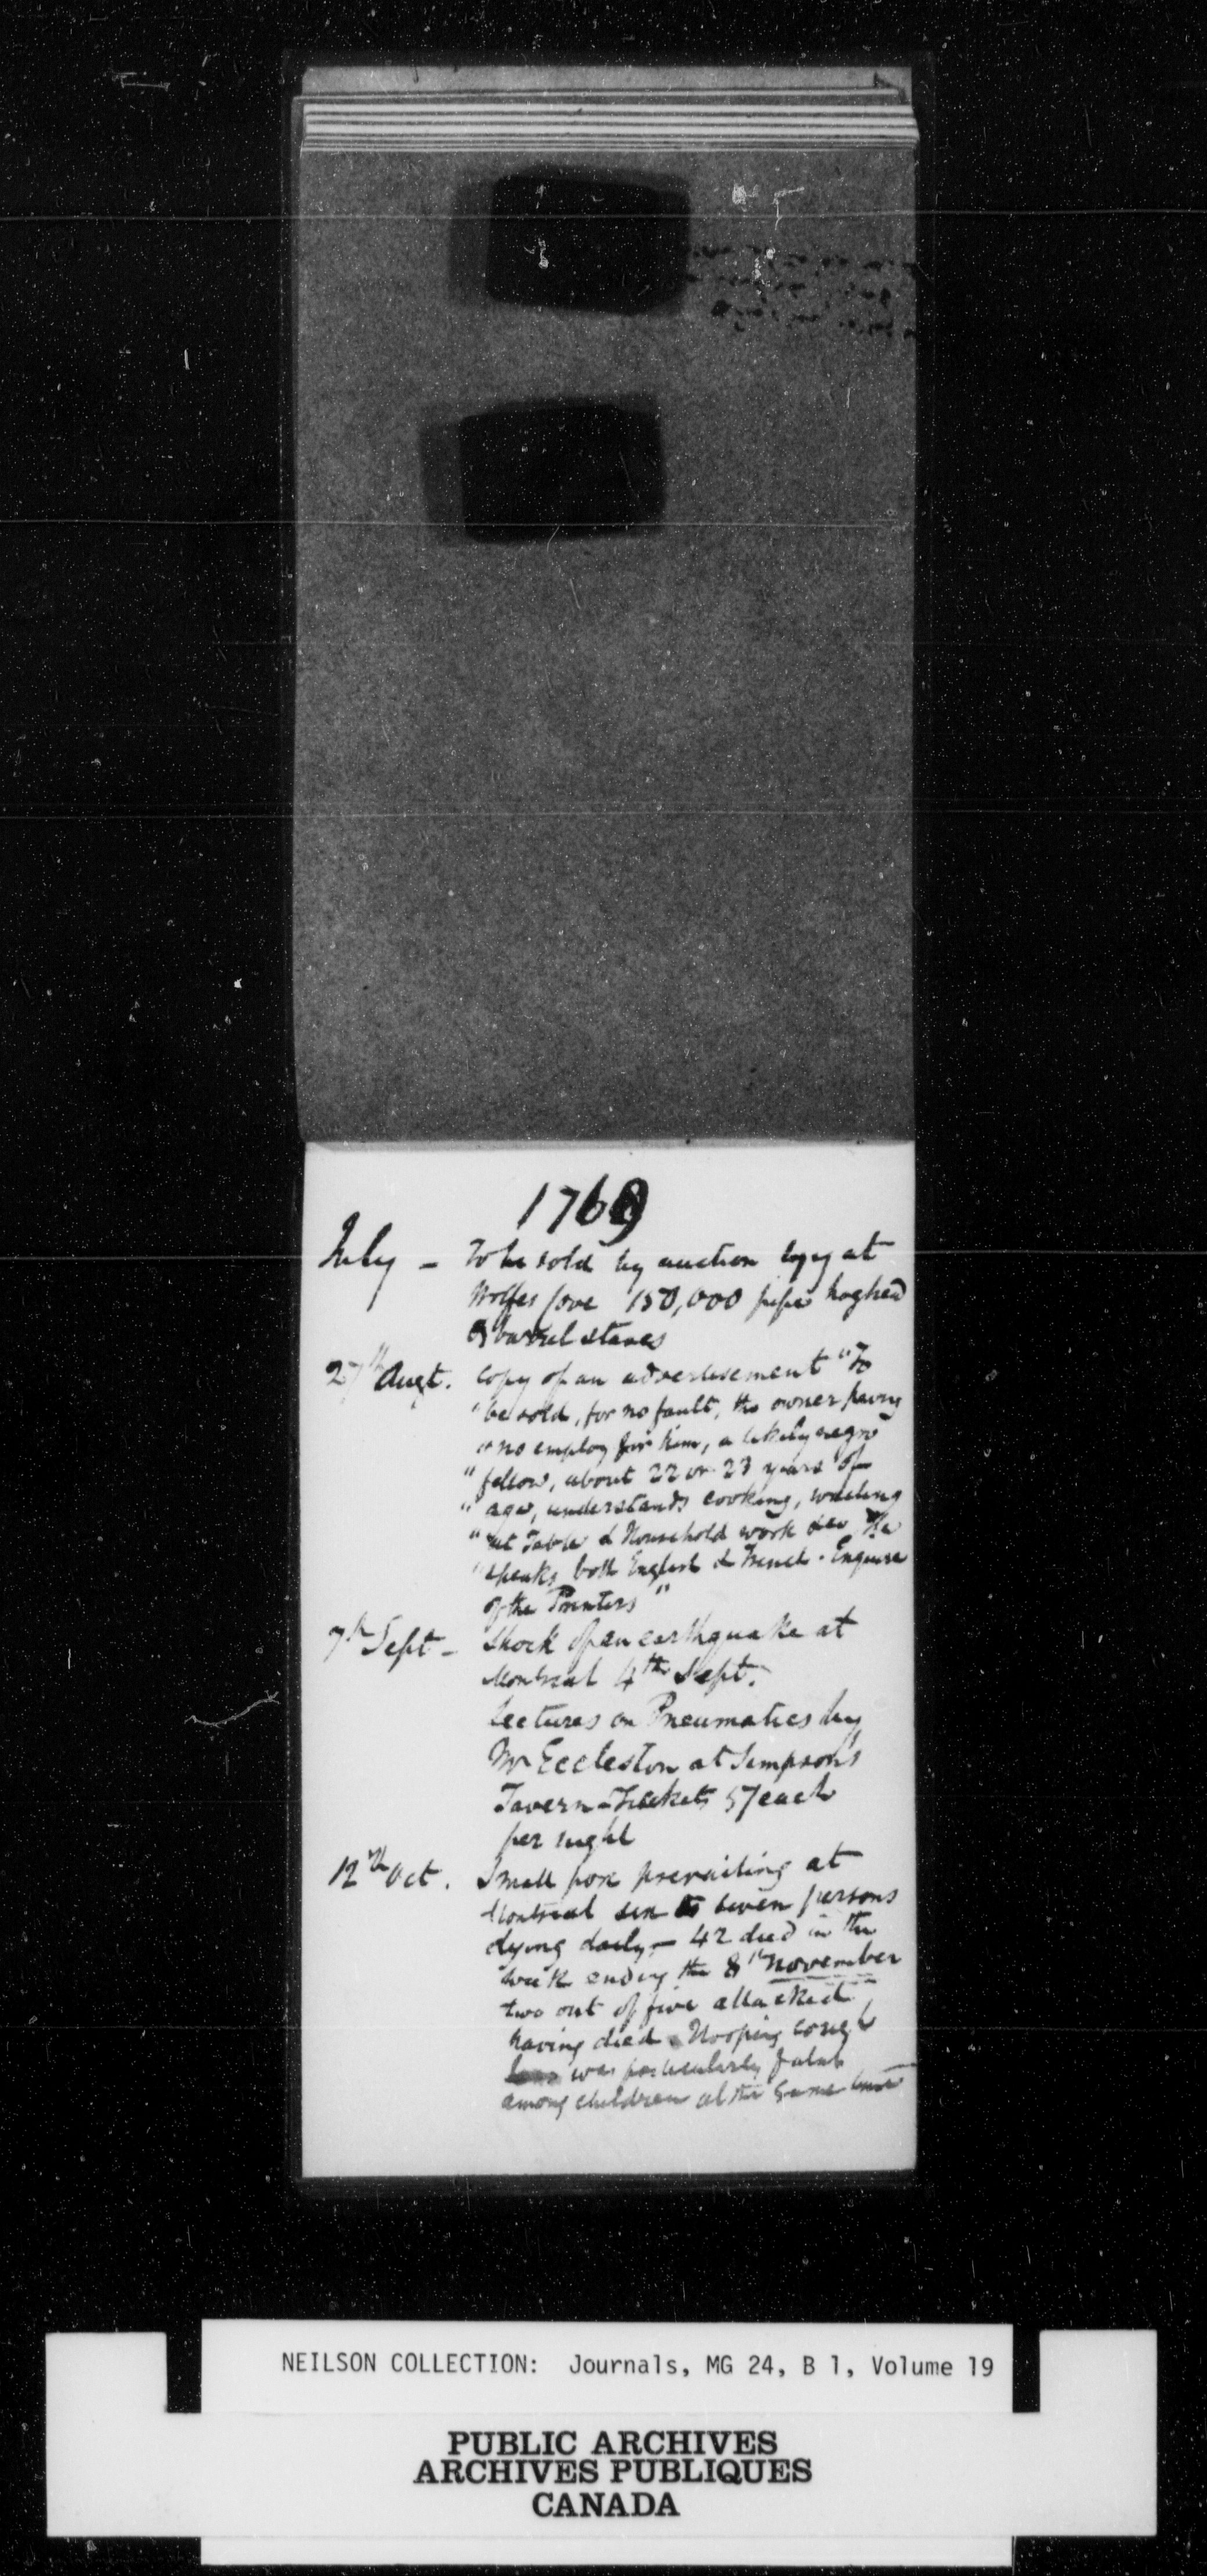 1769
July - To be sold by auction lyg at
Wolfes Cove 150,000 pipe hoghead
& barrel staves
27th Augt. Copy of an advertisement "To
"be sold, for no fault, the owner having
"no employ for him, a likely negro
"fellow, about 22 or 23 years of
"age, understands cooking, waiting
"at Table & Household work &c He
"speaks both English & French. Enquire
of the Printers"
7th Sept - Shock of an earthquake at
Montreal 4th Sept.
Lectures on Pneumatics by
Mr Eccleston at Simpson's
Tavern - Tickets 5/ each
per night
12th Oct. Small pox prevailing at
Montreal six to seven persons
dying daily - 42 died in the
week ending the 8th November
two out of five attacked
having died. Hooping cough
was particularly fatal
among children at the same time
NEILSON COLLECTION: Journals, MG 24, B 1, Volume 19
PUBLIC ARCHIVES
ARCHIVES PUBLIQUES
CANADA